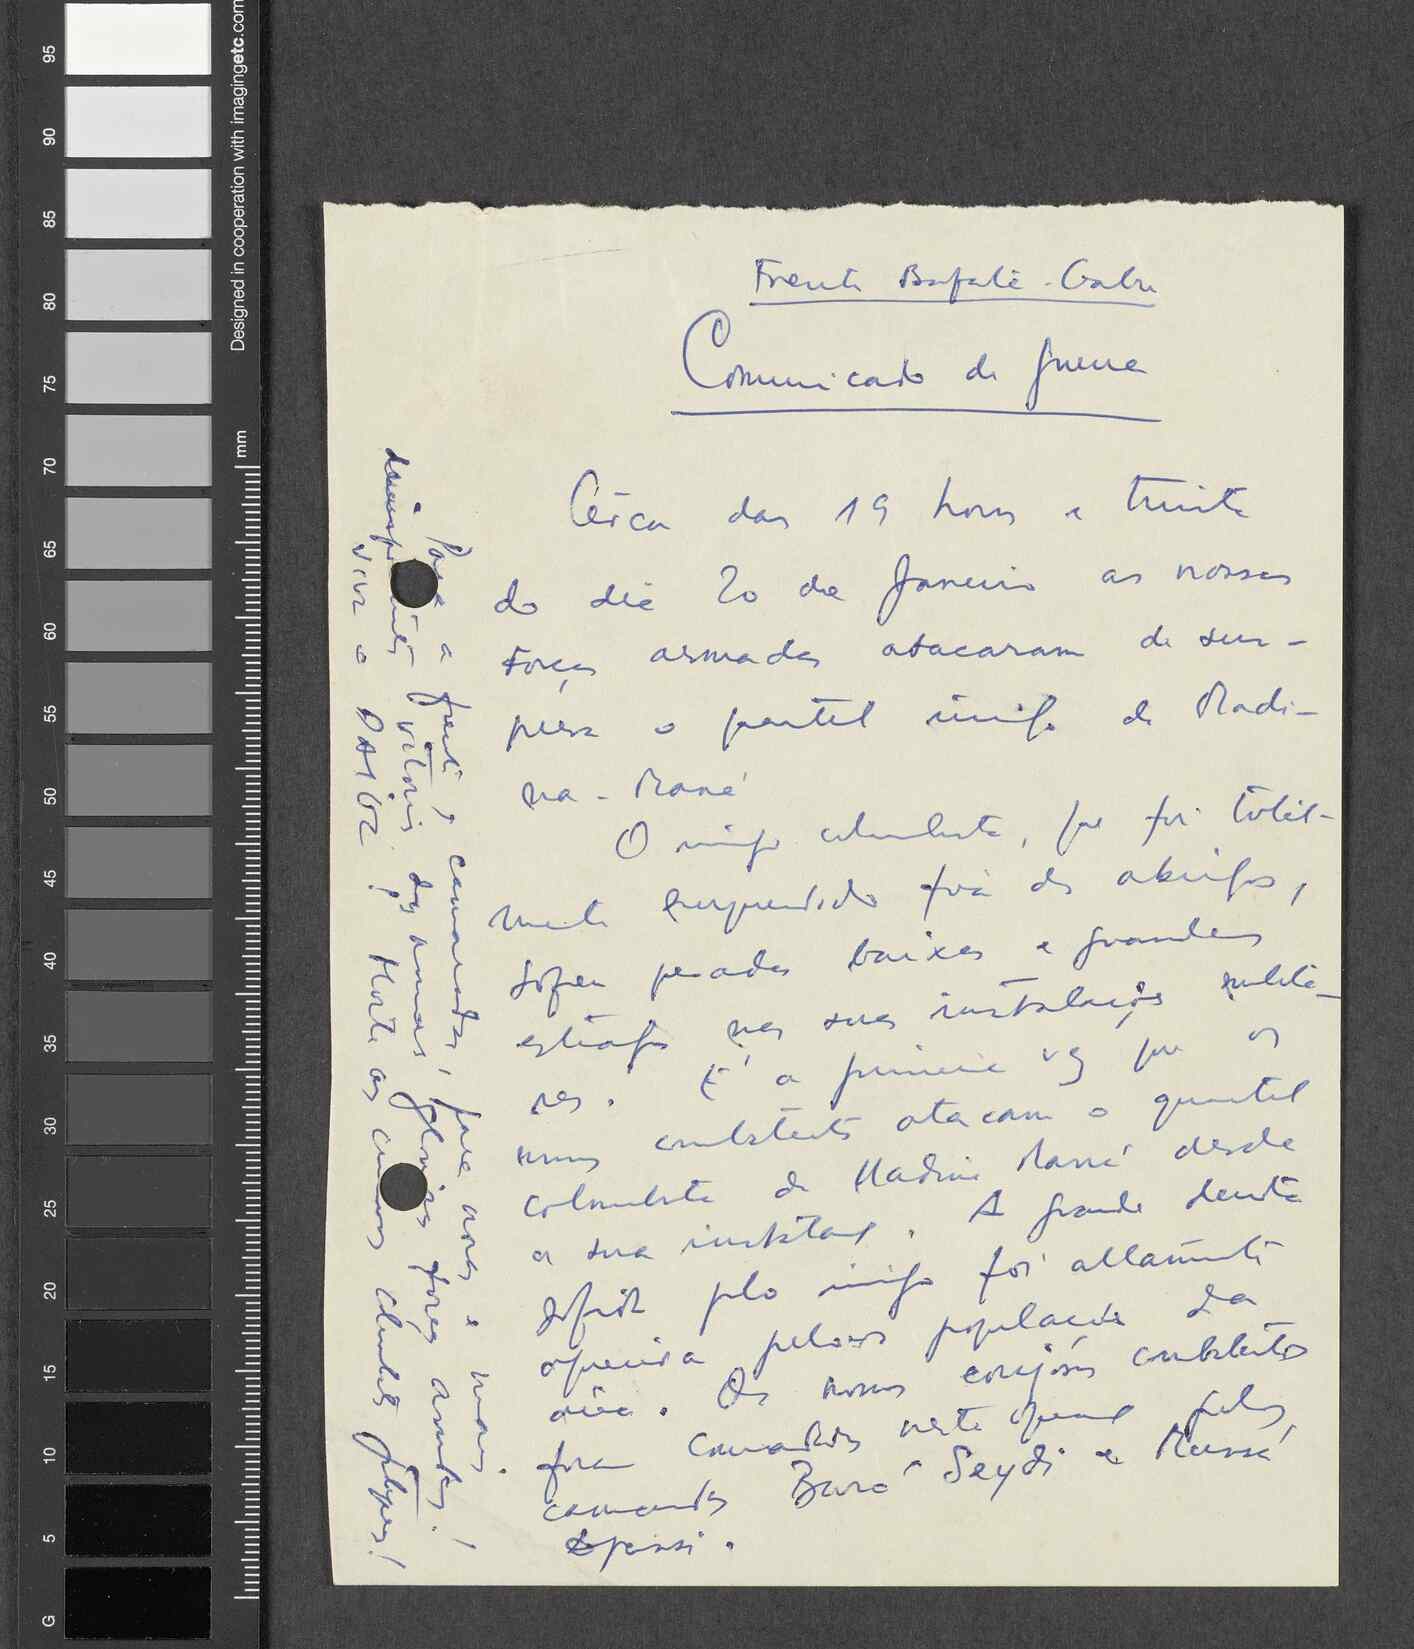 Frente Bafatá-Gabu
Comunicado de guerra
Cêrca das 19 horas e trinta
do dia 20 de Janeiro as nossas
forças armadas atacaram de sur-
presa o quartel inimigo de Madi-
na-Mané
O inimigo colonialista, que foi total-
mente surpreendido fora dos abrigos,
sofreu pesadas baixas e grandes
estragos nas suas instalações milita-
res. É a primeira vez que os
nossos combatentes atacam o quartel
colonialista de Madina Mané desde
a sua instalação. A grande derrota
sofrida pelo inimigo foi altamente
apreciada pelas populações da
área. Os nossos corajosos combatentes
foram comandados nesta operação pelos
comandantes Buro Seydi e Mussá
Para a frente, camaradas, para novas e mais
vitórias das nossas gloriosas forças armadas!
Viva o PAIGC! Morte aos criminosos colonialistas portugueses!
95
90
85
80
75
70
65
60
55
50
45
40
35
30
25
20
15
10
5
G
mm
Designed in cooperation with imagingetc.com